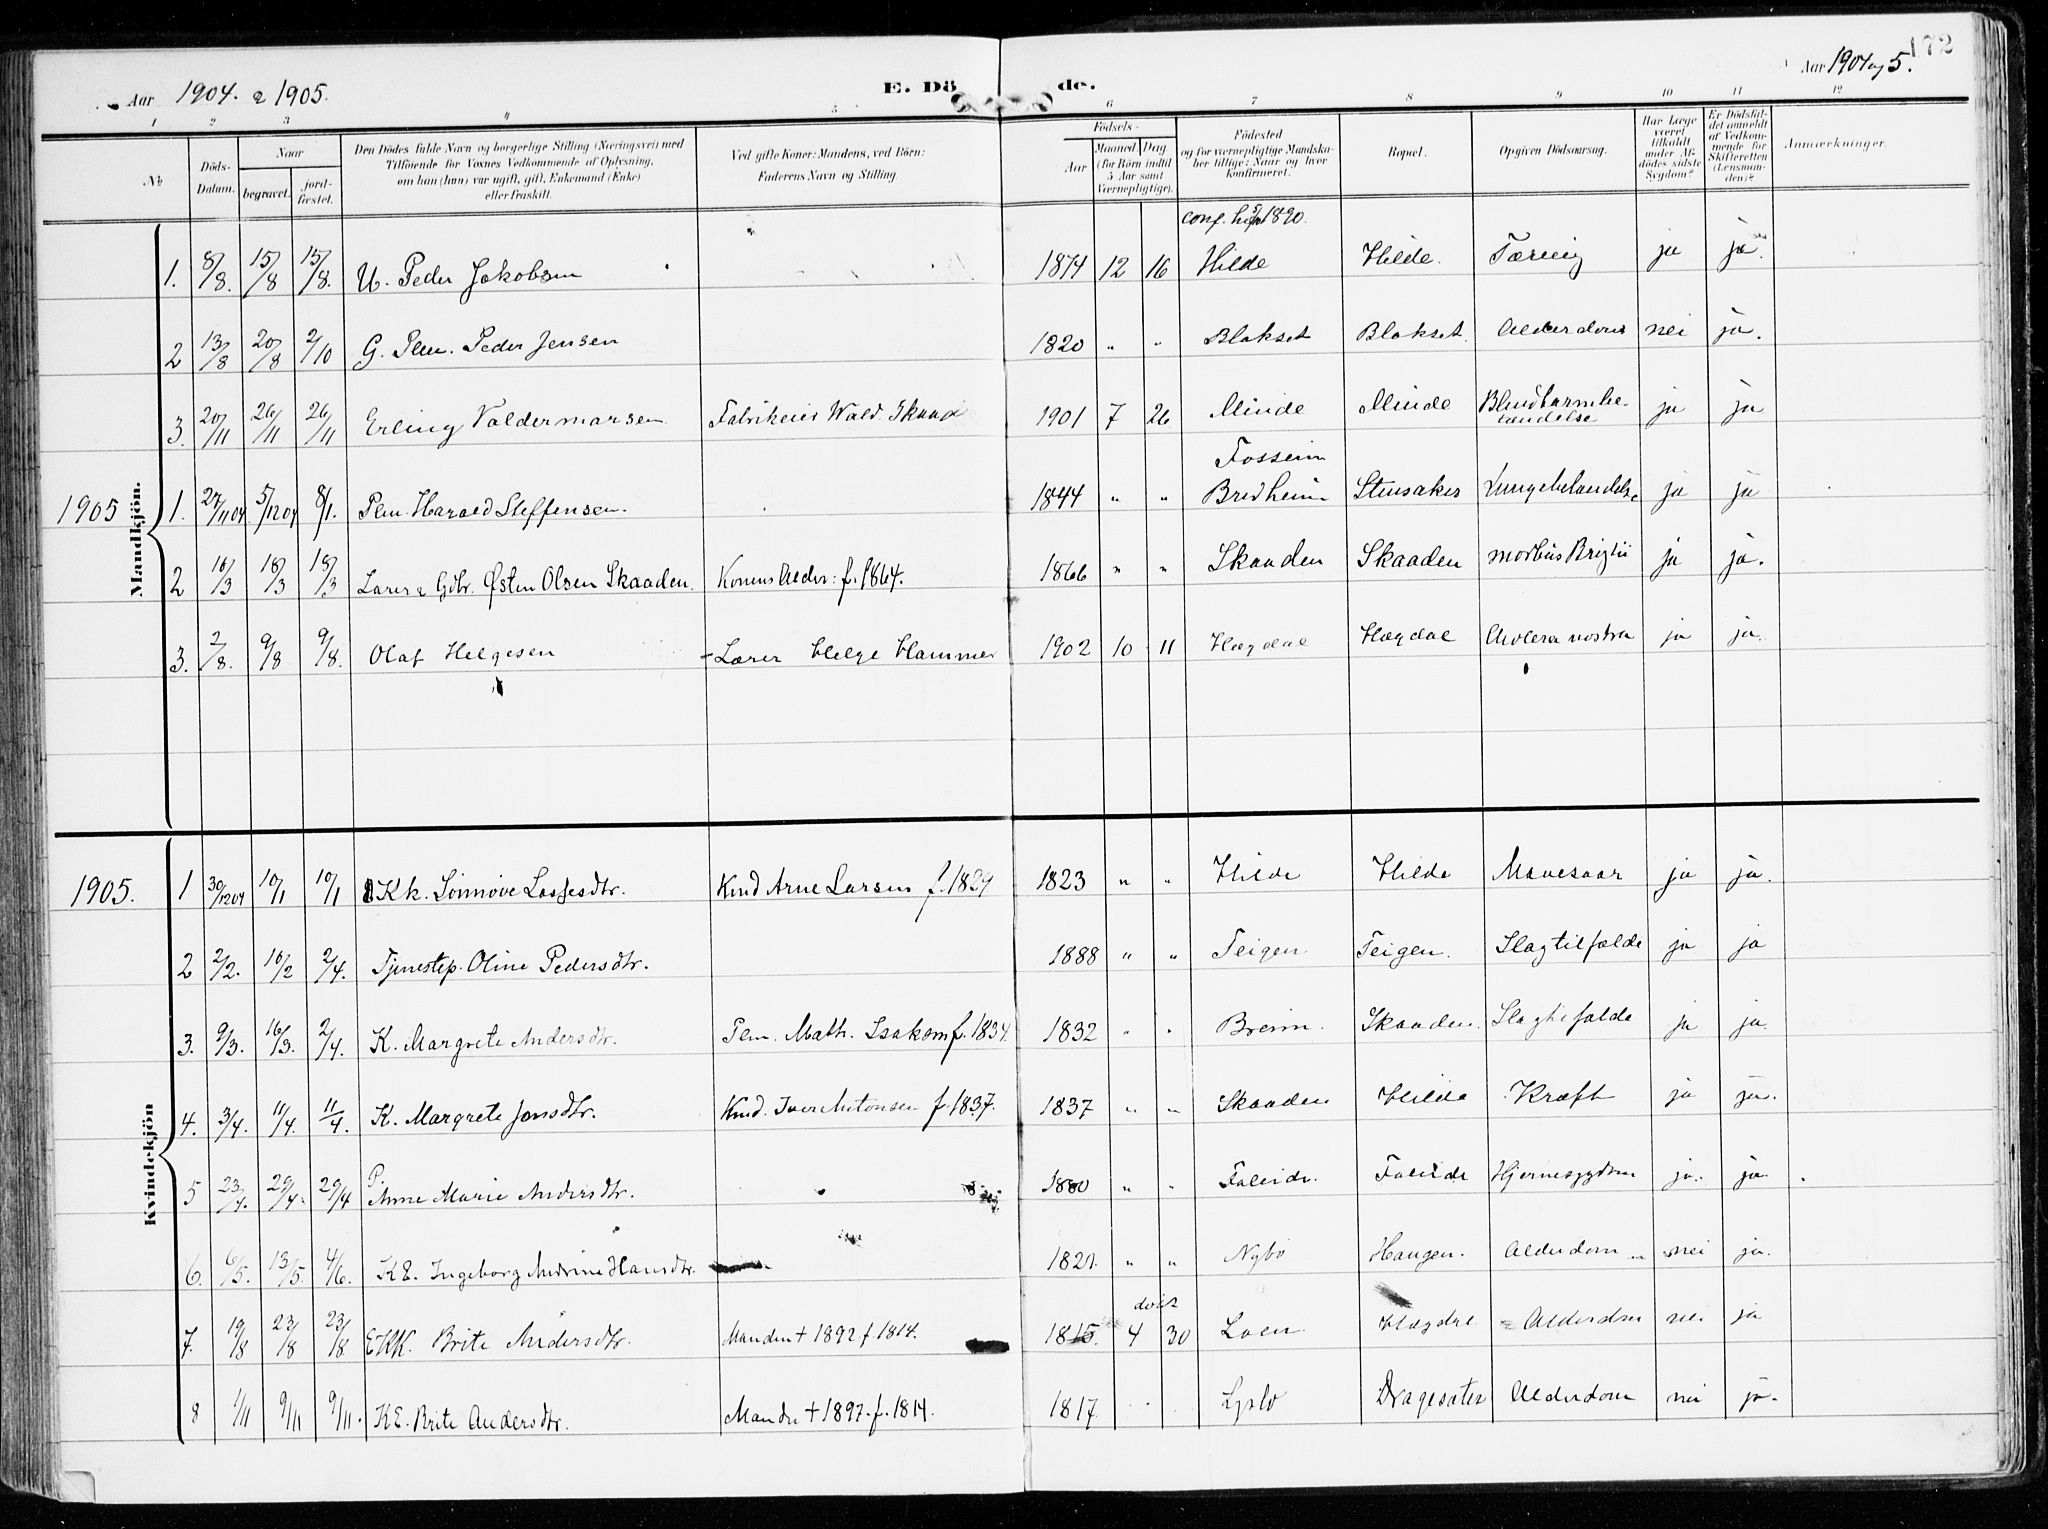 Aar 1904. & 1905.
E. Dö de.
Aar 1904 og 5.
172
1 2 3 4 5 6 7 8 9 10 11 12
No
Döds-Datum.
Naar
begravet.
jord-fæstet.
Den Dödes fulde Navn og borgerlige Stilling (Næringsvei) med
Tilföiende for Voxnes Vedkommende af Oplysning,
om han (hun) var ugift, gift, Enkemand (Enke)
eller fraskilt.
Ved gifte Koner: Mandens, ved Börn:
Faderens Navn og Stilling.
Födsels-
Aar
Maaned Dag
(for Börn indtil
5 Aar samt
Værnepligtige).
Födested
og for værnepligtige Mandska-
ber tillige: Naar og hvor
konfirmeret.
Bopæl.
Opgiven Dödsaarsag.
Har Læge
været
tilkaldt
under Af-
dödes sidste
Sygdom?
Er Dödsfal-
det anmeldt
af Vedkom-
mende for
Skifteretten
(Lensman-
den)?
Anmærkninger.
Mandkjön.
1. 8/8. 15/8 15/8. U. Peder Jakobsen 1874 12 16 Hilde Hilde. Tæring ja ja.
2 13/8 20/8 2/10 G. Pem. Peder Jensen 1820 " " Blakset Blakset. Alderdom nei ja.
3. 20/11 26/11 26/11 Erling Valdermarsen Fabrikeier Wald. Skaad 1901 7 26 Minde Minde Blindtarmbe-
tændelse ja ja
Fosseim
1905 1. 27/11 04 5/12 04 8/1. Pem. Harald Steffensen. 1844 " " Bredheim Stensaker Lungebetændelse ja ja
2 16/3 18/3 18/3 Lærer & Gbr. Østen Olsen Skaaden. Konens Alder: f. 1864. 1866 " " Skaaden Skaaden morbus Brigtii ja ja.
3. 2/8. 9/8 9/8. Olaf Helgesen - Lærer Helge Hammer 1902 10 11 Hægdal Hægdal Cholera nostra ja ja.
Kvindekjön
1905. 1 30/12 04 10/1 10/1 Kk. Sønnøve Lassesdtr. Kmd Arne Larsen f. 1829 1823 " " Hilde Hilde Mavesaar ja ja.
2 2/2. 16/2 2/4. Tjenestep. Oline Pedersdtr. 1888 " " Teigen Teigen. Slagtilfælde ja ja
3. 9/3. 16/3. 2/4. K. Margrete Andersdtr. Pem. Math. Isaksen f. 1834. 1832 " " Breim. Skaaden. Slagtilfælde ja ja.
4. 3/4. 11/4. 11/4. K. Margrete Jonsdtr. Kmd. Iver Antonsen f. 1837. 1837 " " Skaaden Hilde Kræft ja ja.
5 23/4. 29/4. 29/4 P. Anne Marie Andersdtr. 1880 " " Faleide. Faleide Hjernesygdom ja. ja.
6. 6/5. 13/5. 4/6. KE. Ingeborg Andrine Hansdtr. 1821. " " Nybø Haugen. Alderdom nei ja.
7. 19/8 23/8 23/8. EKK. Brite Andersdtr. Manden † 1892 f. 1814. 1815. 4 30 Loen Hægdal Alderdom nei ja
8 1/11 9/11 9/11. KE. Brite Andersdtr. Manden † 1897. f. 1814. 1817 Dragesæter Alderdom nei ja.